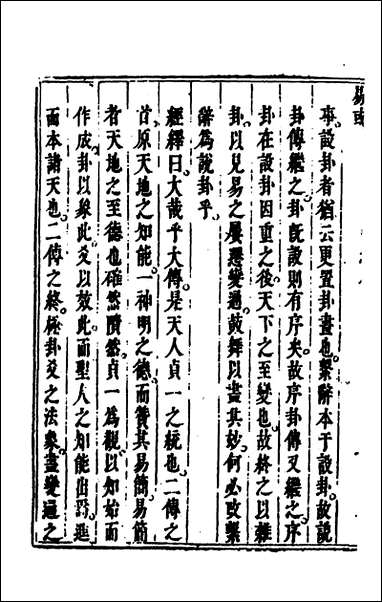 易
事。設卦者猶云更置卦畫也。繫辭本于設卦。故說
卦傳繼之。卦旣設則有序矣。故序卦傳又繼之。序
卦在設卦因重之後。天下之至變也。故終之以雜
卦。以見易之屢遷變通。鼓舞以盡其妙。何必改繫
辭為說卦乎。
經繹曰。大哉乎大傳。是天人貞一之統也。二傳之
首。原天地之知能。一神明之德。而贊其易簡。易簡
者天地之至德也。確然隤然。貞一為觀。以知始而
作成。卦以象此。爻以效此。而聖人之知能出焉。進
而本諸天也。二傳之終。極卦爻之法象。盡變通之